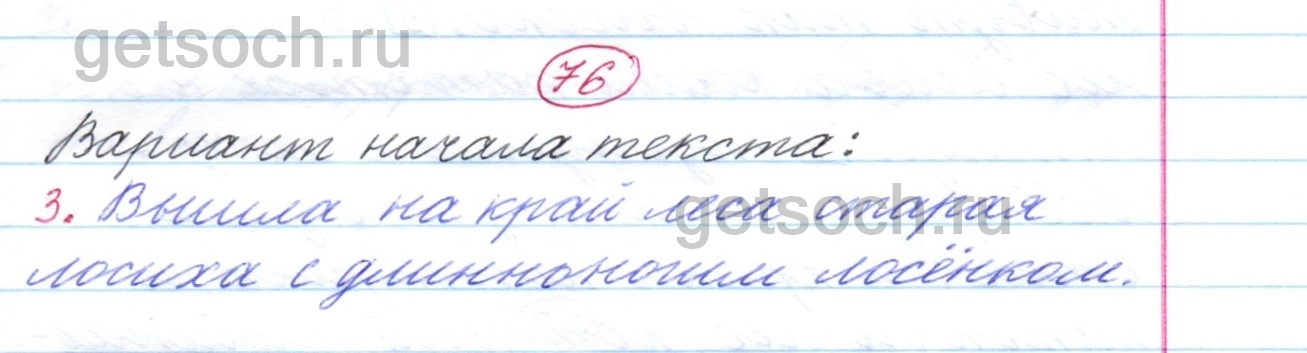 getsoch.ru
76
Вариант начала текста:
3. Вышла на край леса старая
getsoch.ru
лосиха с длинноногим лосёнком.